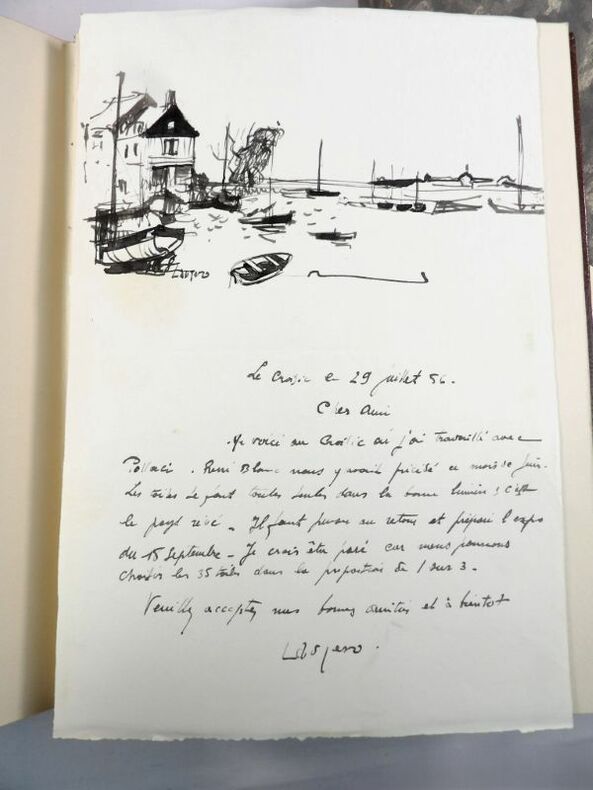 Le Croisic le 29 juillet 56.
Cher Ami
Me voici au Croisic où j'ai travaillé avec
René Blanc nous y avait précédé ce mois de Juin.
Les toiles se font toutes seules dans la bonne lumière ; c'est
le pays rêvé _ Il faut penser au retour et préparer l'expo
du 15 Septembre _ Je crois être paré car nous pourrons
choisir les 35 toiles dans la proportion de 1 sur 3 _
Veuillez accepter mes bonnes amitiés et à bientôt